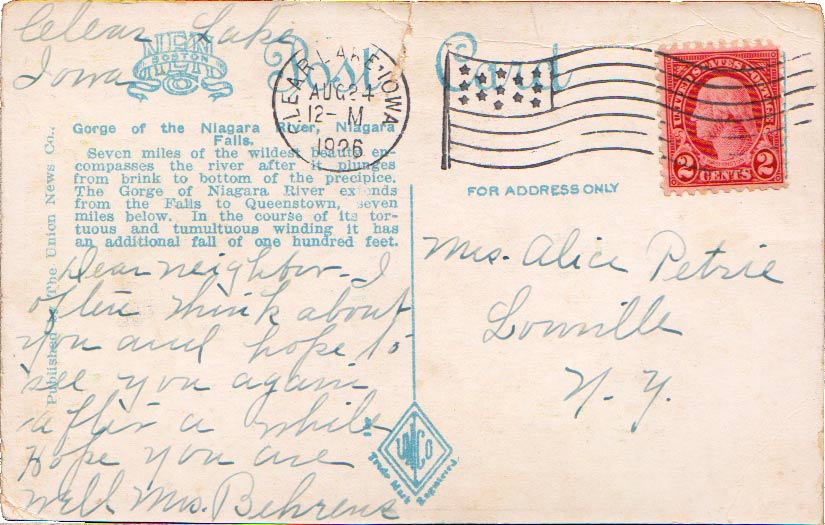 Clear Lake
Iowa
NEW
BOSTON
Post Card
CLEAR LAKE, IOWA
AUG 24
12-M
1926
UNITED STATES POSTAGE
2 CENTS 2
Gorge of the Niagara River, Niagara
Falls.
Seven miles of the wildest beauty en-
compasses the river after it plunges
from brink to bottom of the precipice.
The Gorge of Niagara River extends
from the Falls to Queenstown, seven
miles below. In the course of its tor-
tuous and tumultuous winding it has
an additional fall of one hundred feet.
Published by The Union News Co.,
FOR ADDRESS ONLY
Dear neighbor - I
often think about
you and hope to
see you again
after a while
Hope you are
well Mrs. Behrens
Mrs. Alice Petrie
Lowville
N. Y.
UNCO
Trade Mark Registered.